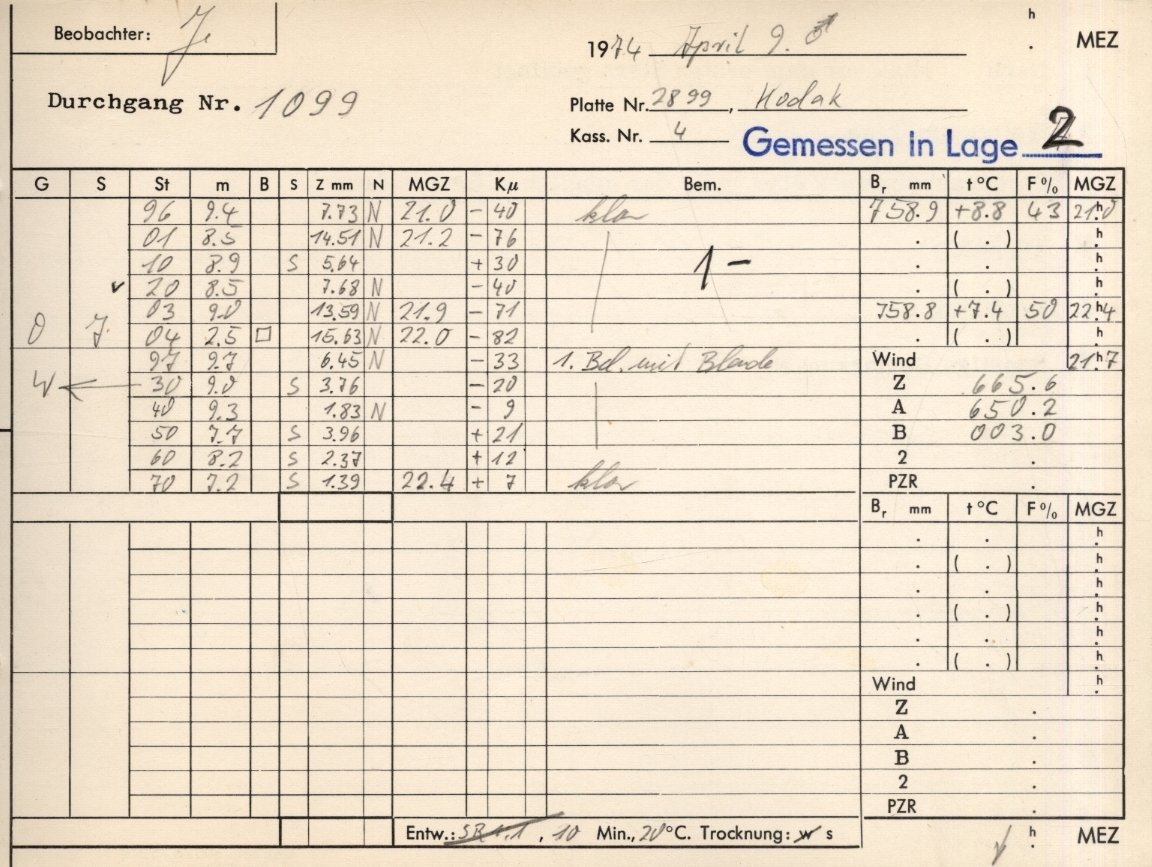 Beobachter: J.
h
1974 April 9. ♂ . MEZ
Durchgang Nr. 1099
Platte Nr. 2899, Kodak
Kass. Nr. 4
Gemessen in Lage 2
G S St m B S Z mm N MGZ Kμ Bem. Br mm t °C F % MGZ
96 9.4 7.73 N 21.0 - 40 klar 758.9 +8.8 43 21h.0
01 8.5 14.51 N 21.2 - 76 . ( . ) h.
10 8.9 S 5.64 + 30 1- . . h.
v 20 8.5 7.68 N - 40 . ( . ) h.
03 9.0 13.59 N 21.9 - 71 758.8 +7.4 50 22h.4
0 7 04 2.5 □ 15.63 N 22.0 - 82 . ( . ) h.
97 9.7 6.45 N - 33 1. Bel. mit Blende Wind 21h.7
W ← 30 9.0 S 3.76 - 20 Z 665.6
40 9.3 1.83 N - 9 A 650.2
50 7.7 S 3.96 + 21 B 003.0
60 8.2 S 2.37 + 12 2 .
70 7.2 S 1.39 22.4 + 7 klar PZR .
Br mm t °C F % MGZ
. . h.
. ( . ) h.
. . h.
. ( . ) h.
. . h.
. ( . ) h.
Wind h.
Z .
A .
B .
2 .
PZR .
Entw.: , 10 Min., 20°C. Trocknung: w s
h. MEZ